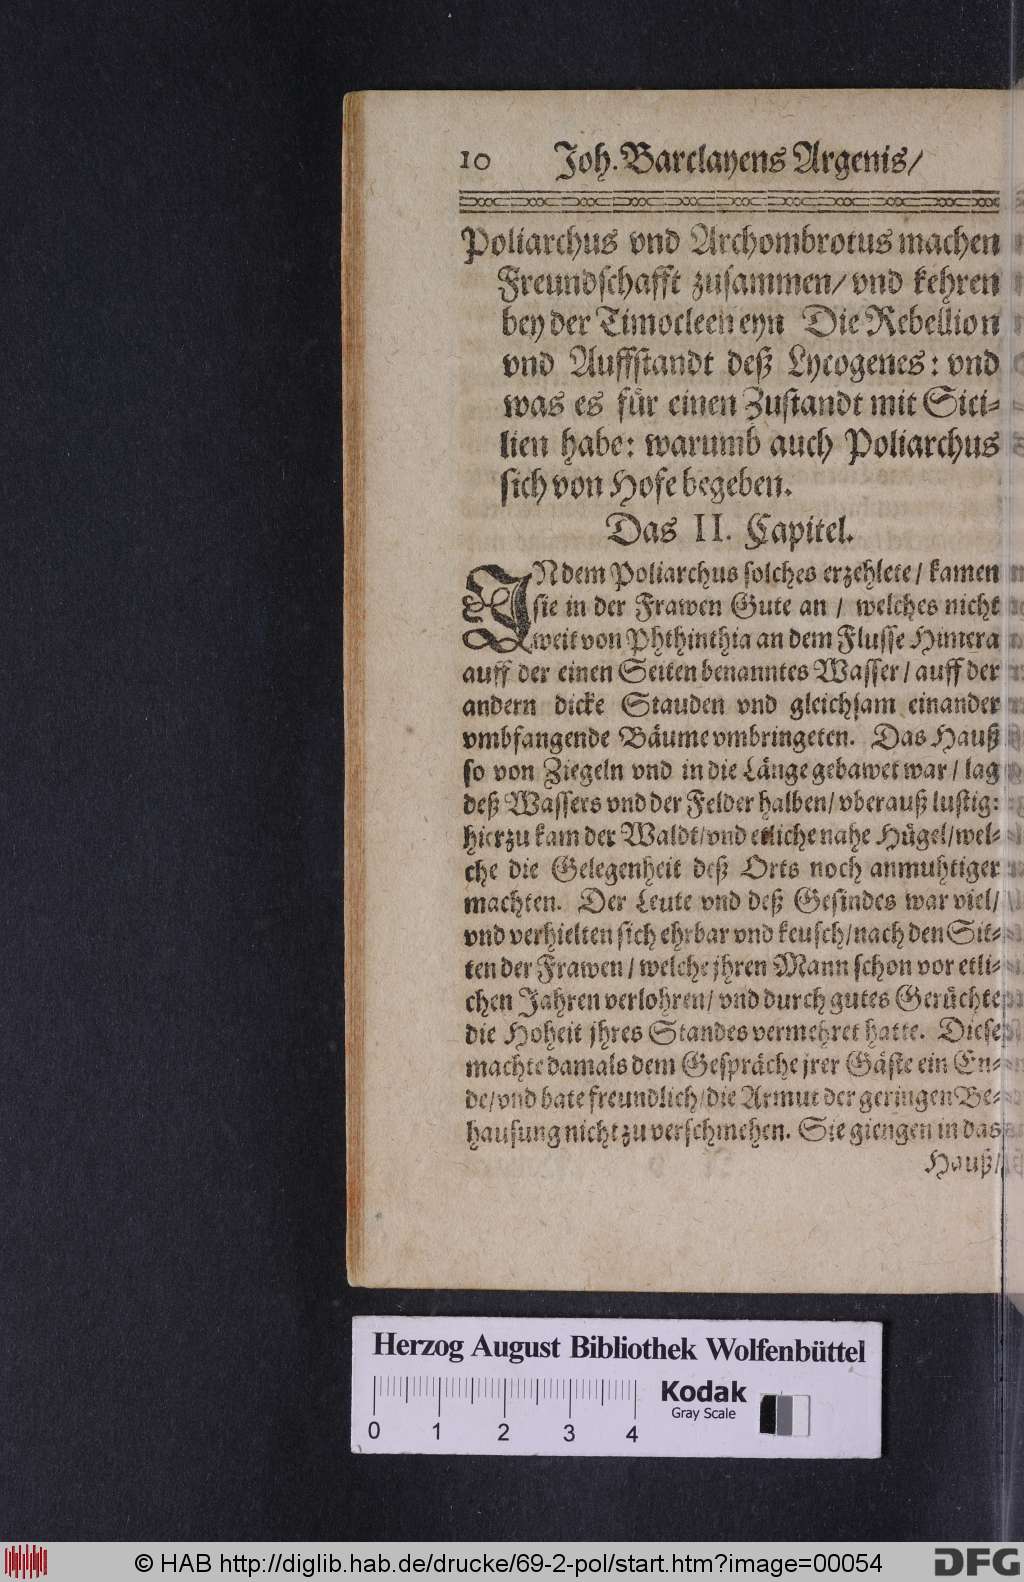 10 Joh. Barclayens Argenis/
Poliarchus vnd Archombrotus machen
Freundschafft zusammen/ vnd kehren
bey der Timocleen eyn Die Rebellion
vnd Auffstandt deß Lycogenes: vnd
was es für einen Zustandt mit Sici-
lien habe: warumb auch Poliarchus
sich von Hofe begeben.
Das II. Capitel.
INdem Poliarchus solches erzehlete/ kamen
sie in der Frawen Gute an / welches nicht
weit von Phthinthia an dem Flusse Himera
auff der einen Seiten benanntes Wasser/ auff der
andern dicke Stauden vnd gleichsam einander
vmbfangende Bäume vmbringeten. Das Hauß
so von Ziegeln vnd in die Länge gebawet war/ lag
deß Wassers vnd der Felder halben/ vberauß lustig:
hierzu kam der Waldt/ vnd etliche nahe Hügel/ wel-
che die Gelegenheit deß Orts noch anmuhtiger
machten. Der Leute vnd deß Gesindes war viel/
vnd verhielten sich ehrbar vnd keusch/ nach den Sit-
ten der Frawen/ welche jhren Mann schon vor etli-
chen Jahren verlohren/ vnd durch gutes Gerüchte
die Hoheit jhres Standes vermehret hatte. Diese
machte damals dem Gespräche jrer Gäste ein En-
de/ vnd bate freundlich/ die Armut der geringen Be-
hausung nicht zu verschmehen. Sie giengen in das
Hauß/
Herzog August Bibliothek Wolfenbüttel
0 1 2 3 4
Kodak
Gray Scale
© HAB http://diglib.hab.de/drucke/69-2-pol/start.htm?image=00054
DFG